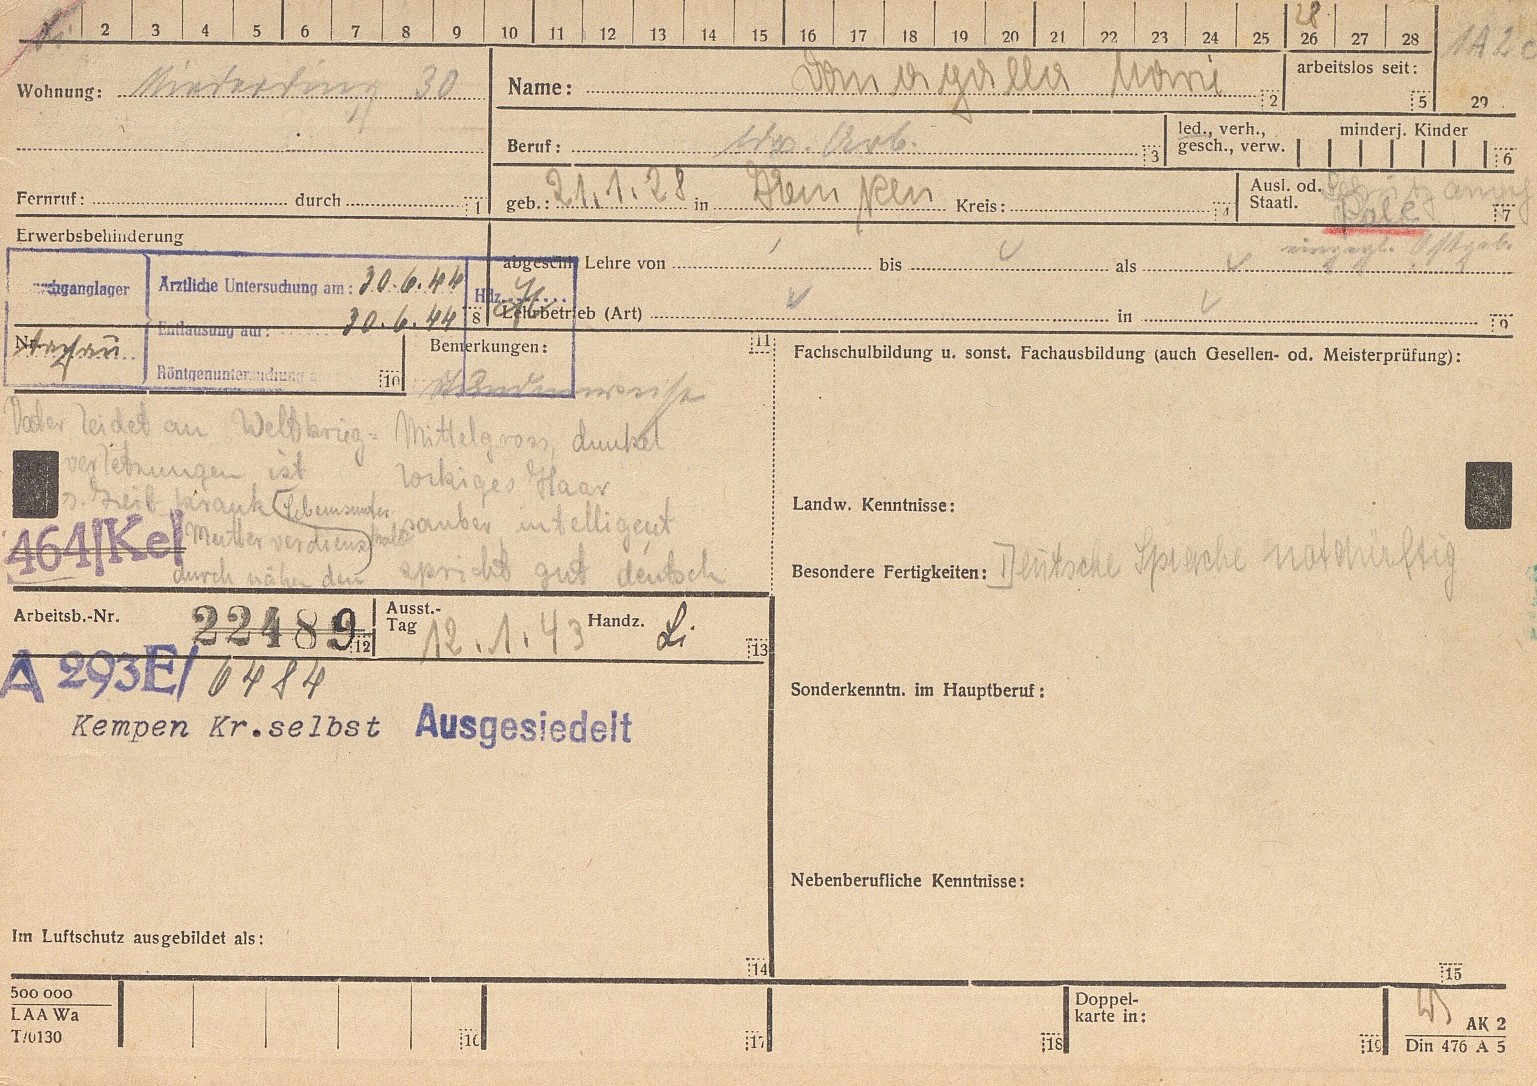 2 3 4 5 6 7 8 9 10 11 12 13 14 15 16 17 18 19 20 21 22 23 24 25 26 27 28
28
Wohnung: Niederding 30
Name: Domagalla Marie 2
arbeitslos seit: 5
29
Beruf: Arb. 3
led., verh.,
gesch., verw.
minderj. Kinder 6
Fernruf: durch 1
geb.: 21.1.28 in Kempen Kreis: 4
Ausl. od.
Staatl. Pole 7
eingegl. Ostgeb.
Erwerbsbehinderung
abgeschl. Lehre von bis als
Lehrbetrieb (Art) in 9
Ärztliche Untersuchung am: 30.6.44
Entlausung am: 30.6.44
Röntgenuntersuchung
Hdz.
8
Nr.
Dachau
10
Bemerkungen:
11
Vater leidet an Weltkrieg=
verletzungen ist
z. Zeit krank
Mutter verdienst
durch nähen den
Mittelgross, dunkel
lockiges Haar
sauber intelligent
spricht gut deutsch
464/Ke/
Fachschulbildung u. sonst. Fachausbildung (auch Gesellen- od. Meisterprüfung):
Landw. Kenntnisse:
Besondere Fertigkeiten: Deutsche Sprache notdürftig
Arbeitsb.-Nr. 22489 12
Ausst.-
Tag 12.1.43 Handz. Li 13
A 293E/ 6484
Kempen Kr.selbst Ausgesiedelt
Sonderkenntn. im Hauptberuf:
Nebenberufliche Kenntnisse:
Im Luftschutz ausgebildet als:
14
15
500 000
LAA Wa
T/0130
16
17
18
Doppel-
karte in:
19
AK 2
Din 476 A 5